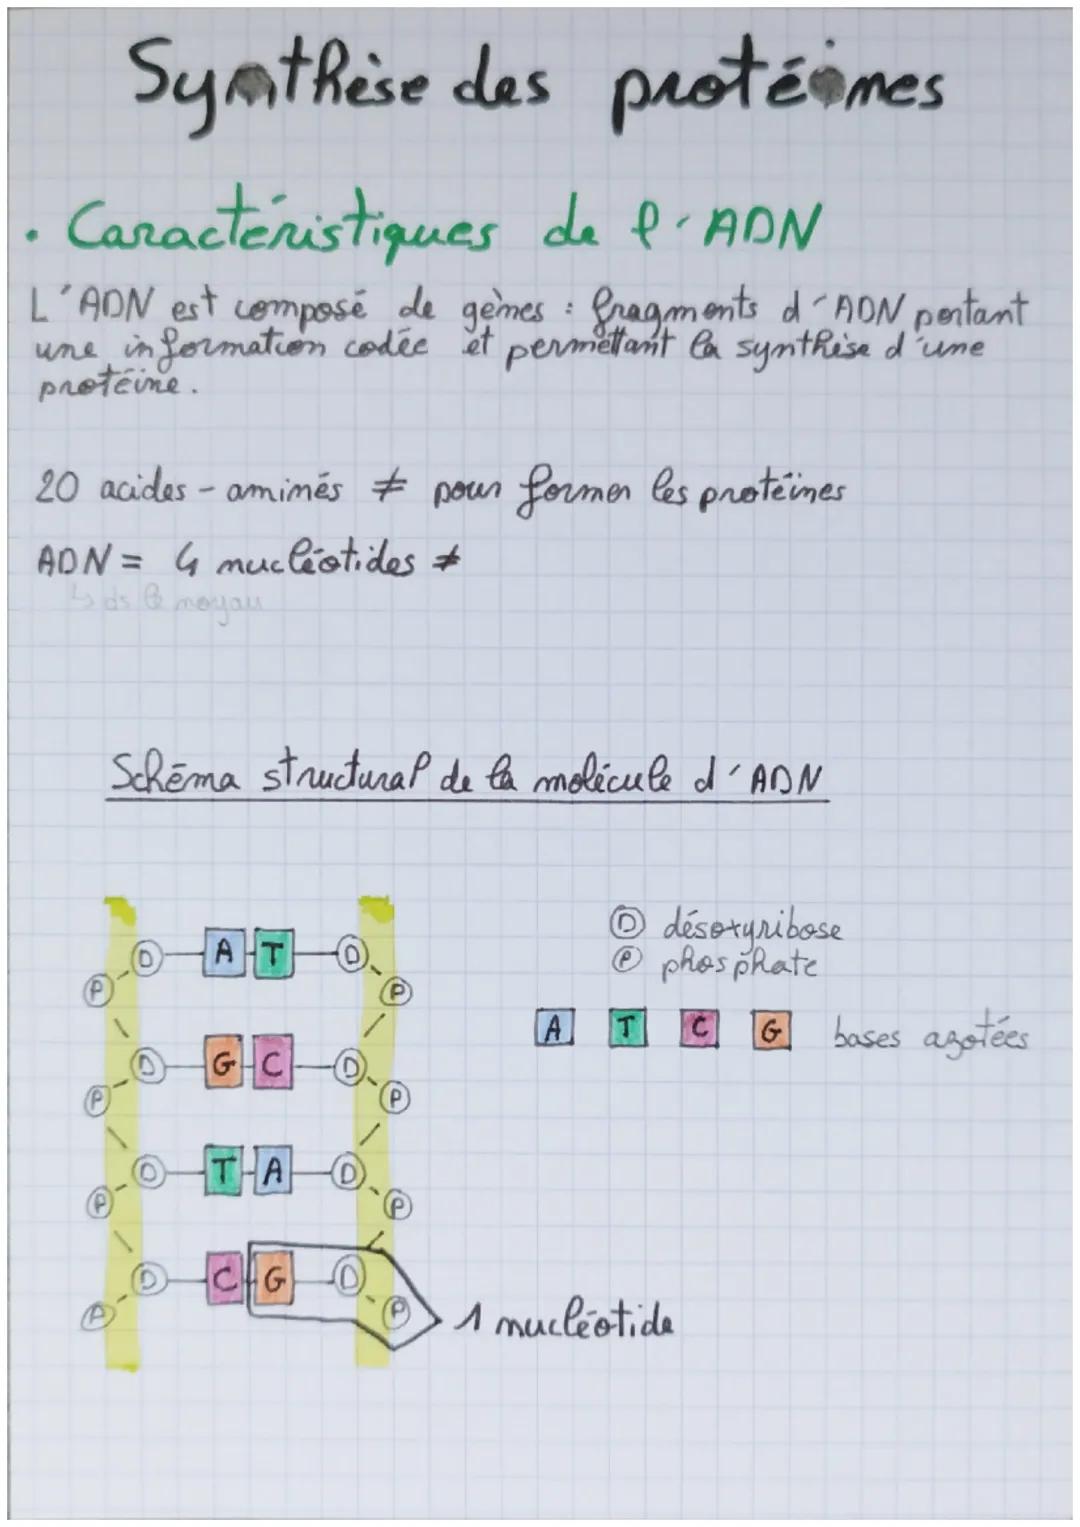 Synthèse des protéines
• Caractéristiques de l'ADN
L'ADN est composé de gènes : fragments d'ADN portant
une information codée et permettant la synthèse d'une
protéine.
20 acides-aminés ≠ pour former les protéines
ADN = 4 nucléotides ≠
↳ ds le noyau
Schéma structural de la molécule d'ADN
D A T D
P P
D G C D
P P
D T A D
P P
D C G D
P P
1 nucléotide
D désoxyribose
P phosphate
A T C G bases azotées